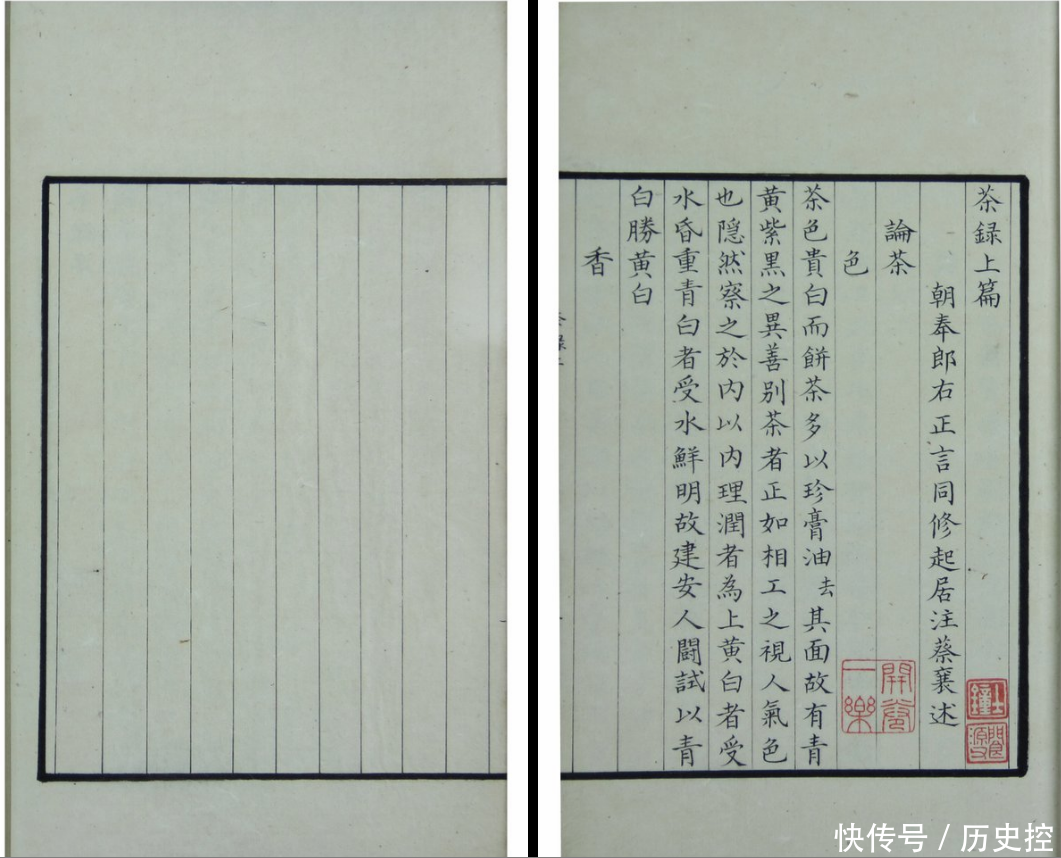 茶録上篇
朝奉郎右正言同修起居注蔡襄述
論茶
色
茶色貴白而餅茶多以珍膏油去其面故有青
黄紫黒之異善別茶者正如相工之視人氣色
也隠然察之於内以内理潤者為上黄白者受
水昏重青白者受水鮮明故建安人鬭試以青
白勝黄白
香
開卷一樂
快传号 / 历史控